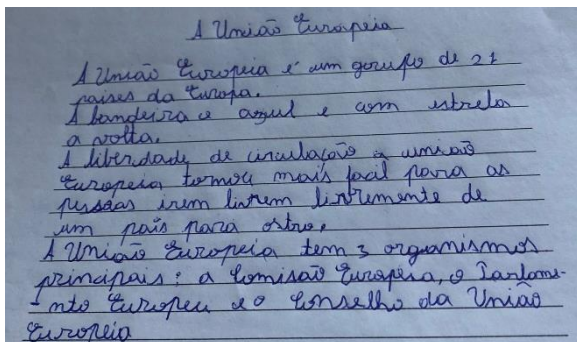 A União Europeia
A União Europeia é um gorupo de 21
paises da Europa.
A bandeira e azul e com estrela
a volta.
A liberdade de circulação a uniaõ
Europeia tornou mais facil para as
pessoas irem livrem livremente de
um país para ostro,
A União Europeia tem 3 organismos
principais: a Comisaõ Europeia, o Parlame-
-nto Europeu e o Conselho da União
Europeia